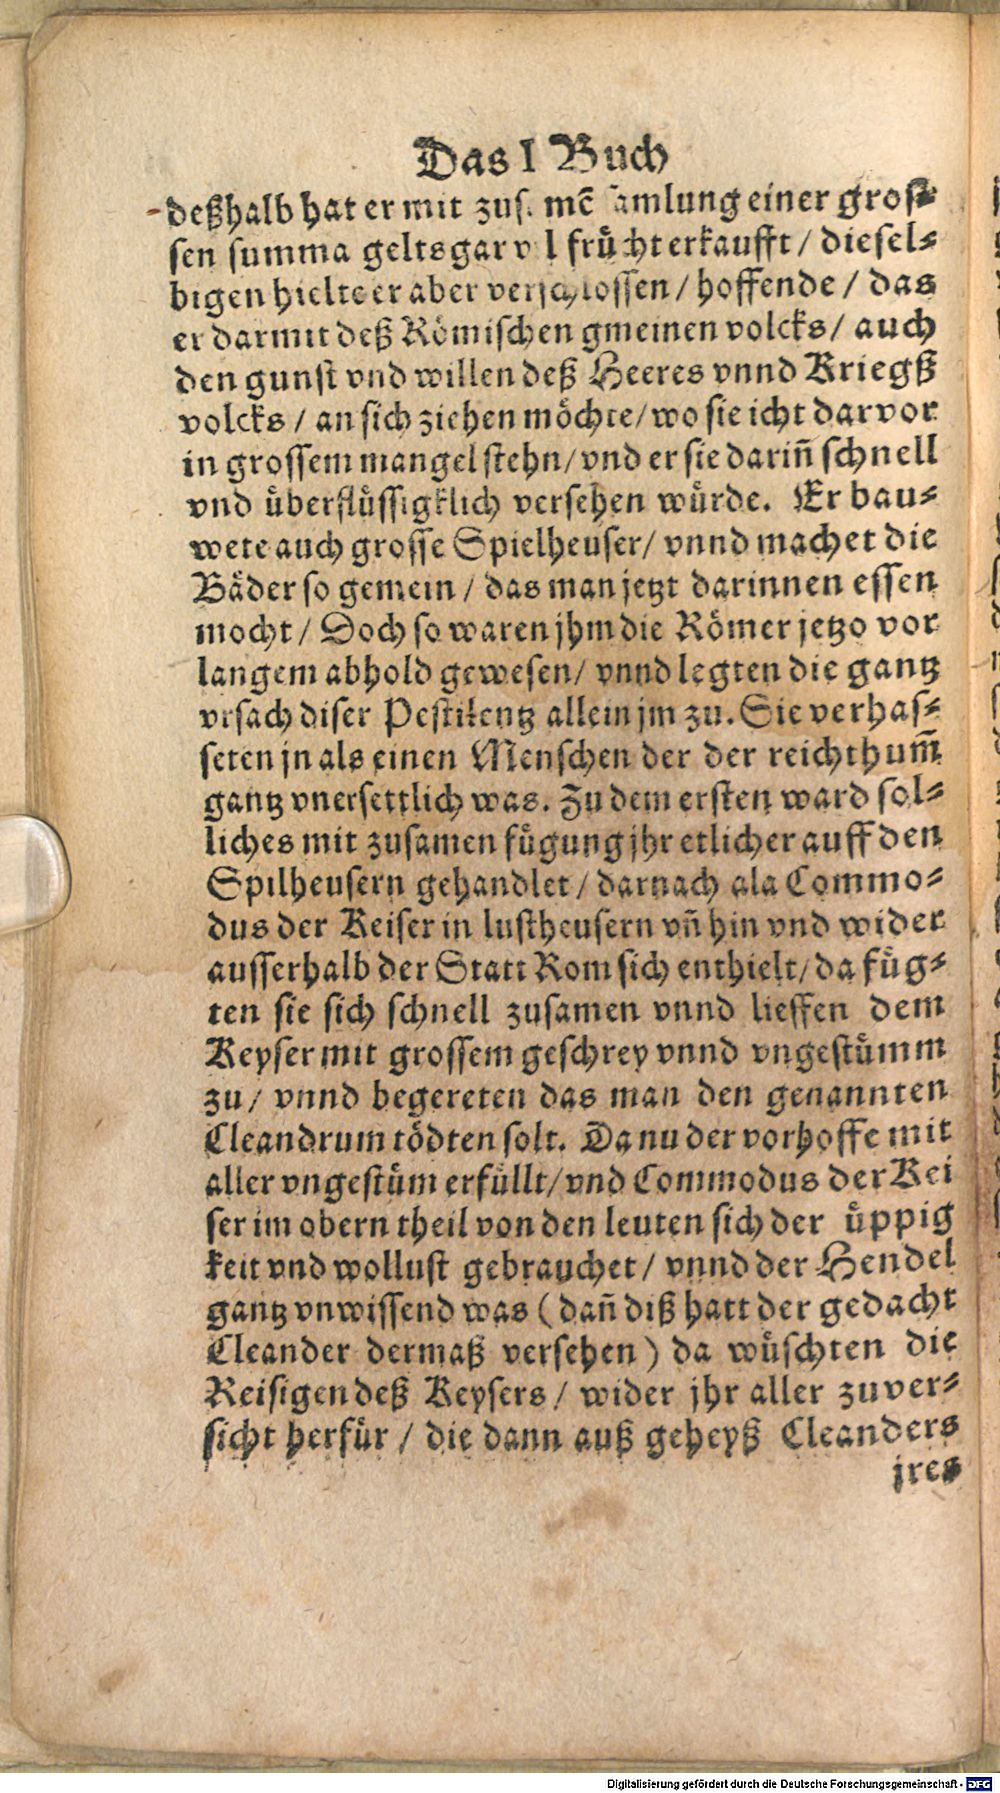 Das I Buch
deßhalb hat er mit zusamẽ samlung einer gros⸗
sen summa gelts gar vil frücht erkaufft / diesel⸗
bigen hielte er aber verschlossen / hoffende / das
er darmit deß Römischen gmeinen volcks / auch
den gunst vnd willen deß Heeres vnnd Kriegß
volcks / an sich ziehen möchte / wo sie icht darvor
in grossem mangel stehn / vnd er sie dariñ schnell
vnd überflüssigklich versehen würde. Er bau⸗
wete auch grosse Spielheuser / vnnd machet die
Bäder so gemein / das man jetzt darinnen essen
mocht / Doch so waren jhm die Römer jetzo vor
langem abhold gewesen / vnnd legten die gantz
vrsach diser Pestilentz allein jm zu. Sie verhas⸗
seten jn als einen Menschen der der reichthum̃
gantz vnersettlich was. Zu dem ersten ward sol⸗
liches mit zusamen fügung jhr etlicher auff den
Spilheusern gehandlet / darnach ala Commo⸗
dus der Keiser in lustheusern vñ hin vnd wider
ausserhalb der Statt Rom sich enthielt / da füg⸗
ten sie sich schnell zusamen vnnd lieffen dem
Keyser mit grossem geschrey vnnd vngestümm
zu / vnnd begereten das man den genannten
Cleandrum tödten solt. Da nu der vorhoffe mit
aller vngestüm erfüllt / vnd Commodus der Kei
ser im obern theil von den leuten sich der üppig
keit vnd wollust gebrauchet / vnnd der Hendel
gantz vnwissend was (dañ diß hatt der gedacht
Cleander dermaß versehen) da wüschten die
Reisigen deß Keysers / wider jhr aller zuver⸗
sicht herfür / die dann auß geheyß Cleanders
jres
Digitalisierung gefördert durch die Deutsche Forschungsgemeinschaft - DFG